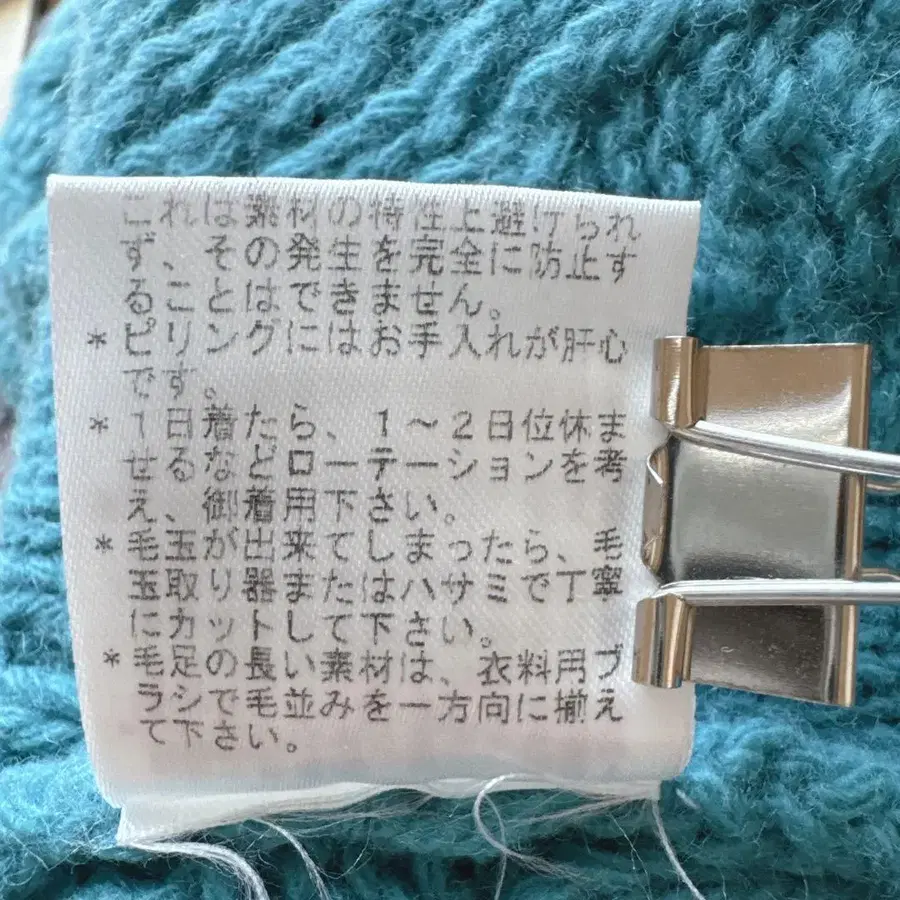 これは素材の特性上避けられ
ず、その発生を完全に防止す
ることはできません。
*ピリングにはお手入れが肝心
です。
*1日着たら、1~2日位休ま
せるなどローテーションを考
え、御着用下さい。
*毛玉が出来てしまったら、毛
玉取り器またはハサミで丁寧
にカットして下さい。
*毛足の長い素材は、衣料用ブ
ラシで毛並みを一方向に揃え
て下さい。